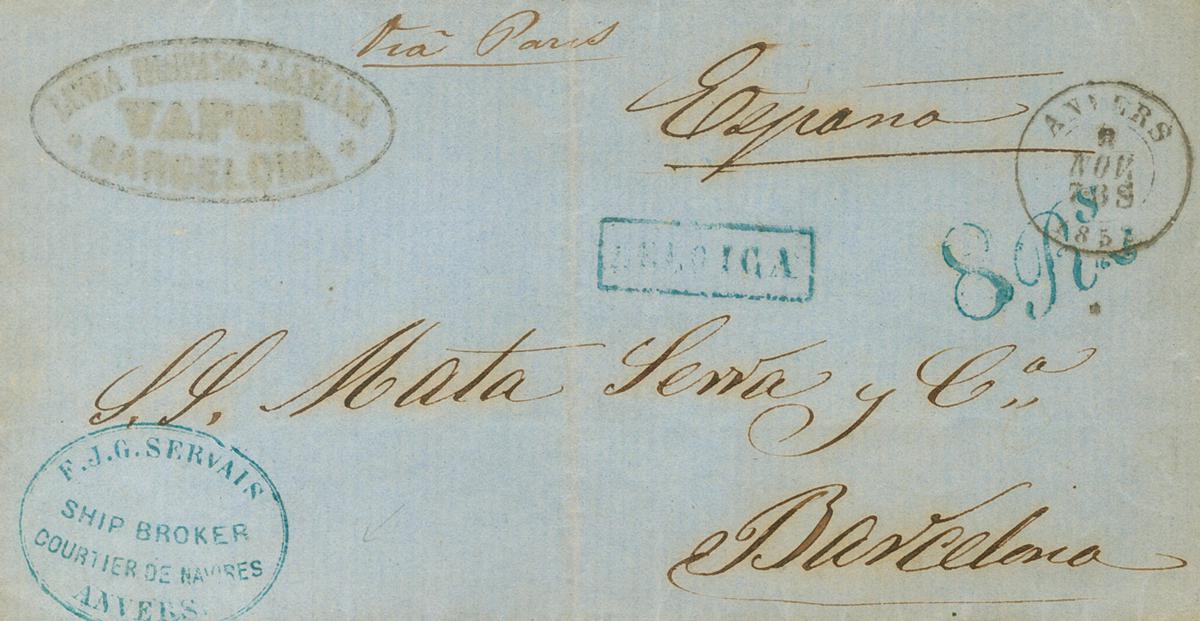 Via Paris
España
VAPOR
BARCELONA
ANVERS
8
NOV
185
BELGICA
8 Rs
S.S. Mata Serra y Cª
F.J.G. SERVAIS
SHIP BROKER
COURTIER DE NAVIRES
ANVERS.
Barcelona